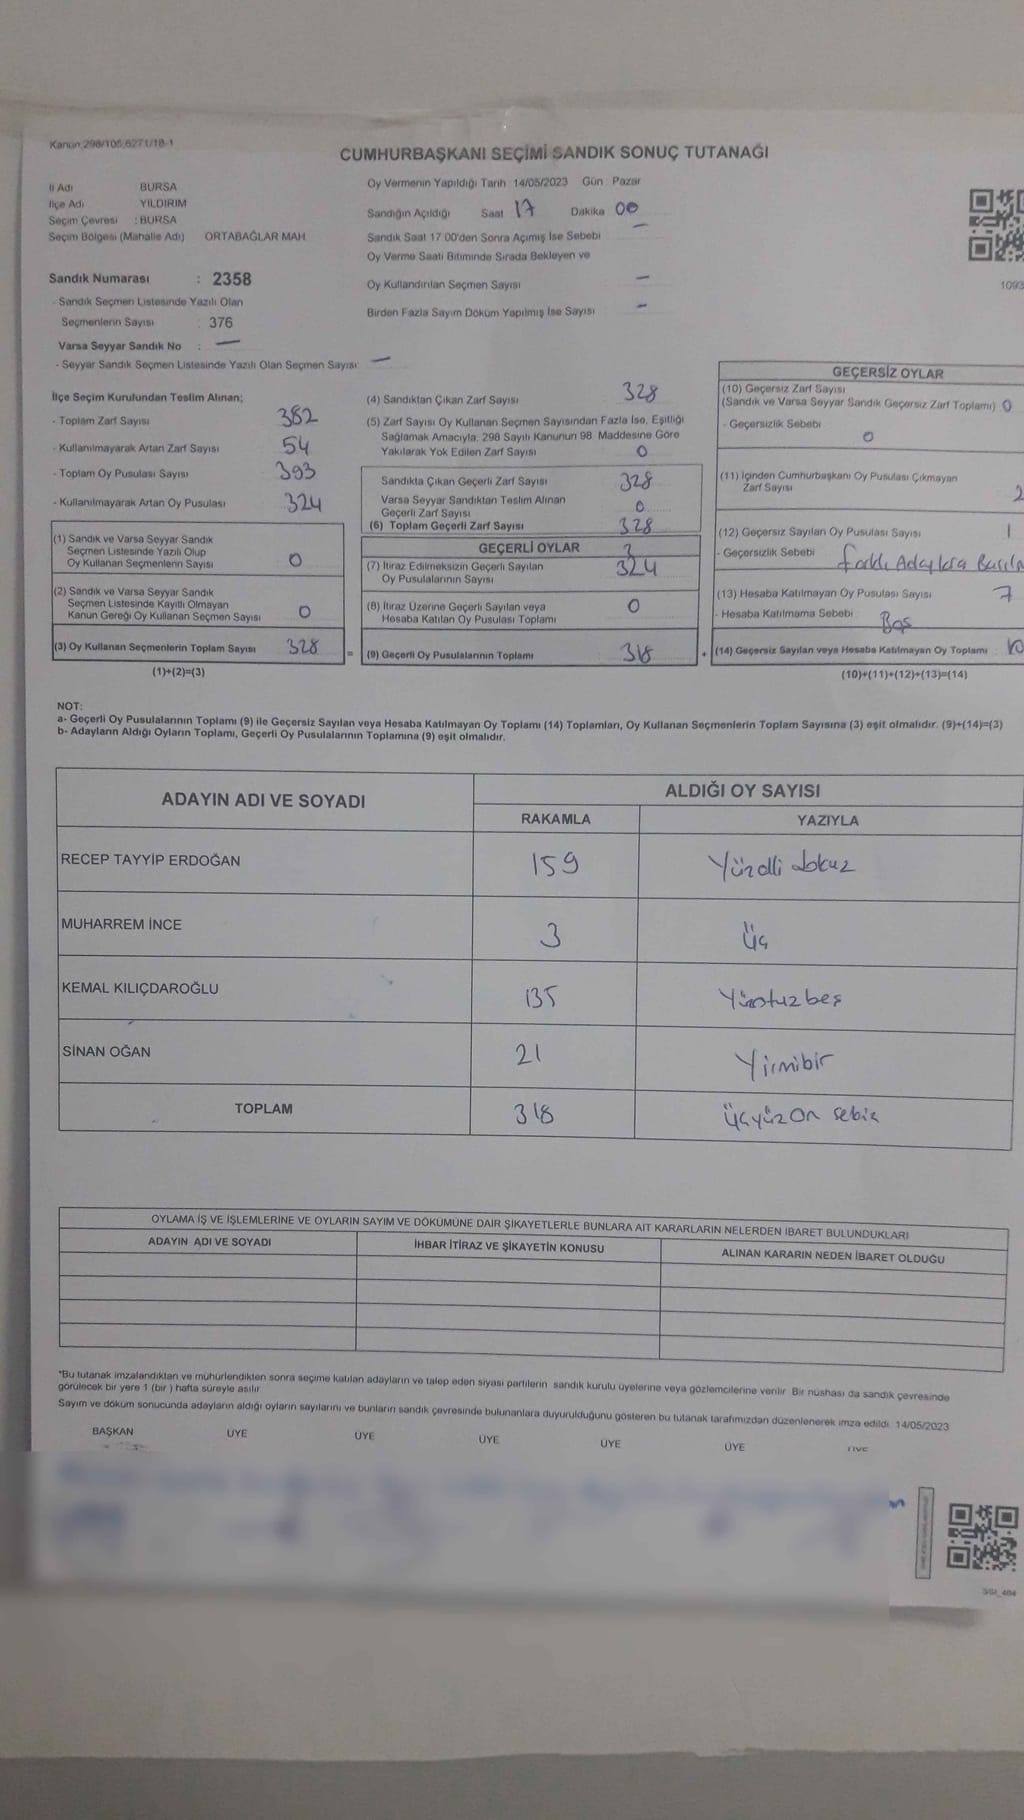 Kanun 298/105,6271/18-1
CUMHURBAŞKANI SEÇİMİ SANDIK SONUÇ TUTANAĞI
İl Adı BURSA
İlçe Adı YILDIRIM
Seçim Çevresi : BURSA
Seçim Bölgesi (Mahalle Adı) ORTABAĞLAR MAH.
Sandık Numarası : 2358
- Sandık Seçmen Listesinde Yazılı Olan
Seçmenlerin Sayısı : 376
Varsa Seyyar Sandık No : —
- Seyyar Sandık Seçmen Listesinde Yazılı Olan Seçmen Sayısı: —
Oy Vermenin Yapıldığı Tarih 14/05/2023 Gün : Pazar
Sandığın Açıldığı Saat 17 Dakika 00
Sandık Saat 17:00'den Sonra Açılmış İse Sebebi —
Oy Verme Saati Bitiminde Sırada Bekleyen ve
Oy Kullandırılan Seçmen Sayısı —
Birden Fazla Sayım Döküm Yapılmış İse Sayısı —
1093
İlçe Seçim Kurulundan Teslim Alınan;
- Toplam Zarf Sayısı 382
- Kullanılmayarak Artan Zarf Sayısı 54
- Toplam Oy Pusulası Sayısı 393
- Kullanılmayarak Artan Oy Pusulası 324
(1) Sandık ve Varsa Seyyar Sandık
Seçmen Listesinde Yazılı Olup
Oy Kullanan Seçmenlerin Sayısı 0
(2) Sandık ve Varsa Seyyar Sandık
Seçmen Listesinde Kayıtlı Olmayan
Kanun Gereği Oy Kullanan Seçmen Sayısı 0
(3) Oy Kullanan Seçmenlerin Toplam Sayısı 328
(1)+(2)=(3)
(4) Sandıktan Çıkan Zarf Sayısı 328
(5) Zarf Sayısı Oy Kullanan Seçmen Sayısından Fazla İse, Eşitliği
Sağlamak Amacıyla, 298 Sayılı Kanunun 98. Maddesine Göre
Yakılarak Yok Edilen Zarf Sayısı 0
Sandıkta Çıkan Geçerli Zarf Sayısı 328
Varsa Seyyar Sandıktan Teslim Alınan
Geçerli Zarf Sayısı 0
(6) Toplam Geçerli Zarf Sayısı 328
GEÇERLİ OYLAR
(7) İtiraz Edilmeksizin Geçerli Sayılan
Oy Pusulalarının Sayısı 324
(8) İtiraz Üzerine Geçerli Sayılan veya
Hesaba Katılan Oy Pusulası Toplamı 0
= (9) Geçerli Oy Pusulalarının Toplamı 318
GEÇERSİZ OYLAR
(10) Geçersiz Zarf Sayısı
(Sandık ve Varsa Seyyar Sandık Geçersiz Zarf Toplamı) 0
- Geçersizlik Sebebi
0
(11) İçinden Cumhurbaşkanı Oy Pusulası Çıkmayan
Zarf Sayısı 2
(12) Geçersiz Sayılan Oy Pusulası Sayısı 1
- Geçersizlik Sebebi Farklı Adaylara
(13) Hesaba Katılmayan Oy Pusulası Sayısı 7
- Hesaba Katılmama Sebebi Boş
+ (14) Geçersiz Sayılan veya Hesaba Katılmayan Oy Toplamı : 10
(10)+(11)+(12)+(13)=(14)
NOT:
a- Geçerli Oy Pusulalarının Toplamı (9) ile Geçersiz Sayılan veya Hesaba Katılmayan Oy Toplamı (14) Toplamları, Oy Kullanan Seçmenlerin Toplam Sayısına (3) eşit olmalıdır. (9)+(14)=(3)
b- Adayların Aldığı Oyların Toplamı, Geçerli Oy Pusulalarının Toplamına (9) eşit olmalıdır.
ADAYIN ADI VE SOYADI ALDIĞI OY SAYISI
RAKAMLA YAZIYLA
RECEP TAYYİP ERDOĞAN 159 Yüzelli dokuz
MUHARREM İNCE 3 Üç
KEMAL KILIÇDAROĞLU 135 Yüzotuzbeş
SİNAN OĞAN 21 Yirmibir
TOPLAM 318 Üçyüz On sekiz
OYLAMA İŞ VE İŞLEMLERİNE VE OYLARIN SAYIM VE DÖKÜMÜNE DAİR ŞİKAYETLERLE BUNLARA AİT KARARLARIN NELERDEN İBARET BULUNDUKLARI
ADAYIN ADI VE SOYADI İHBAR İTİRAZ VE ŞİKAYETİN KONUSU ALINAN KARARIN NEDEN İBARET OLDUĞU
*Bu tutanak imzalandıktan ve mühürlendikten sonra seçime katılan adayların ve talep eden siyasi partilerin sandık kurulu üyelerine veya gözlemcilerine verilir. Bir nüshası da sandık çevresinde
görülecek bir yere 1 (bir ) hafta süreyle asılır.
Sayım ve döküm sonucunda adayların aldığı oyların sayılarını ve bunların sandık çevresinde bulunanlara duyurulduğunu gösteren bu tutanak tarafımızdan düzenlenerek imza edildi. 14/05/2023
BAŞKAN ÜYE ÜYE ÜYE ÜYE ÜYE ÜYE